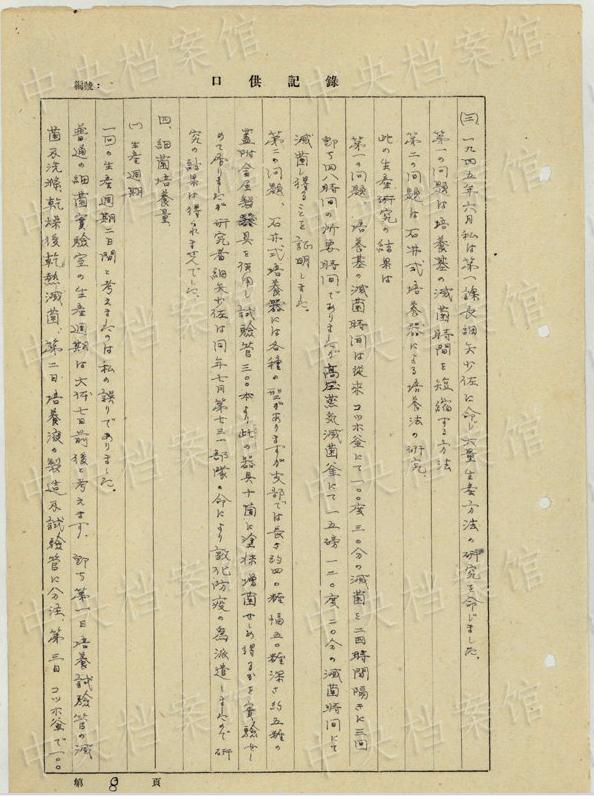 口供記錄
編號：
(三) 一九四五年六月私は第一課長細矢少佐に命じ大量生産方法の研究を命じました。
第一の問題は培養基の滅菌時間を短縮する方法
第二の問題は石井式培養器による培養法の研究、
此の生産研究の結果は
第一の問題、培養基の滅菌時間は従来コッホ釜にて一〇〇度三〇分の滅菌を二四時間隔きに三回
即ち四八時間の所要時間でありましたが高圧蒸気滅菌釜にて一五磅一二〇度二〇分の滅菌時間にて
滅菌し得ることを証明しました。
第二の問題、石井式培養器には各種の型がありますが支部では長さ約四〇糎幅五〇糎深さ約五糎の
蓋附金属製器具を使用し試験管三〇〇本より此の器具十箇に塗抹増菌せしめ得るかを実験せし
めて居りましたが研究者細矢少佐は同年七月第七三一部隊の命により敦化防疫の為派遣しましたので研
究の結果は得られませんでした。
四、細菌培養量
(1) 生産週期
一回の生産週期二日間と考えましたのは私の誤りでありました。
普通の細菌実験室の生産週期は大体七日前後と考えます。即ち第一日培養試験管の滅
菌及洗滌乾燥後乾熱滅菌、第二日培養液の製造及試験管に分注、第三日コッホ釜で一〇〇
第 8 頁
中央档案馆